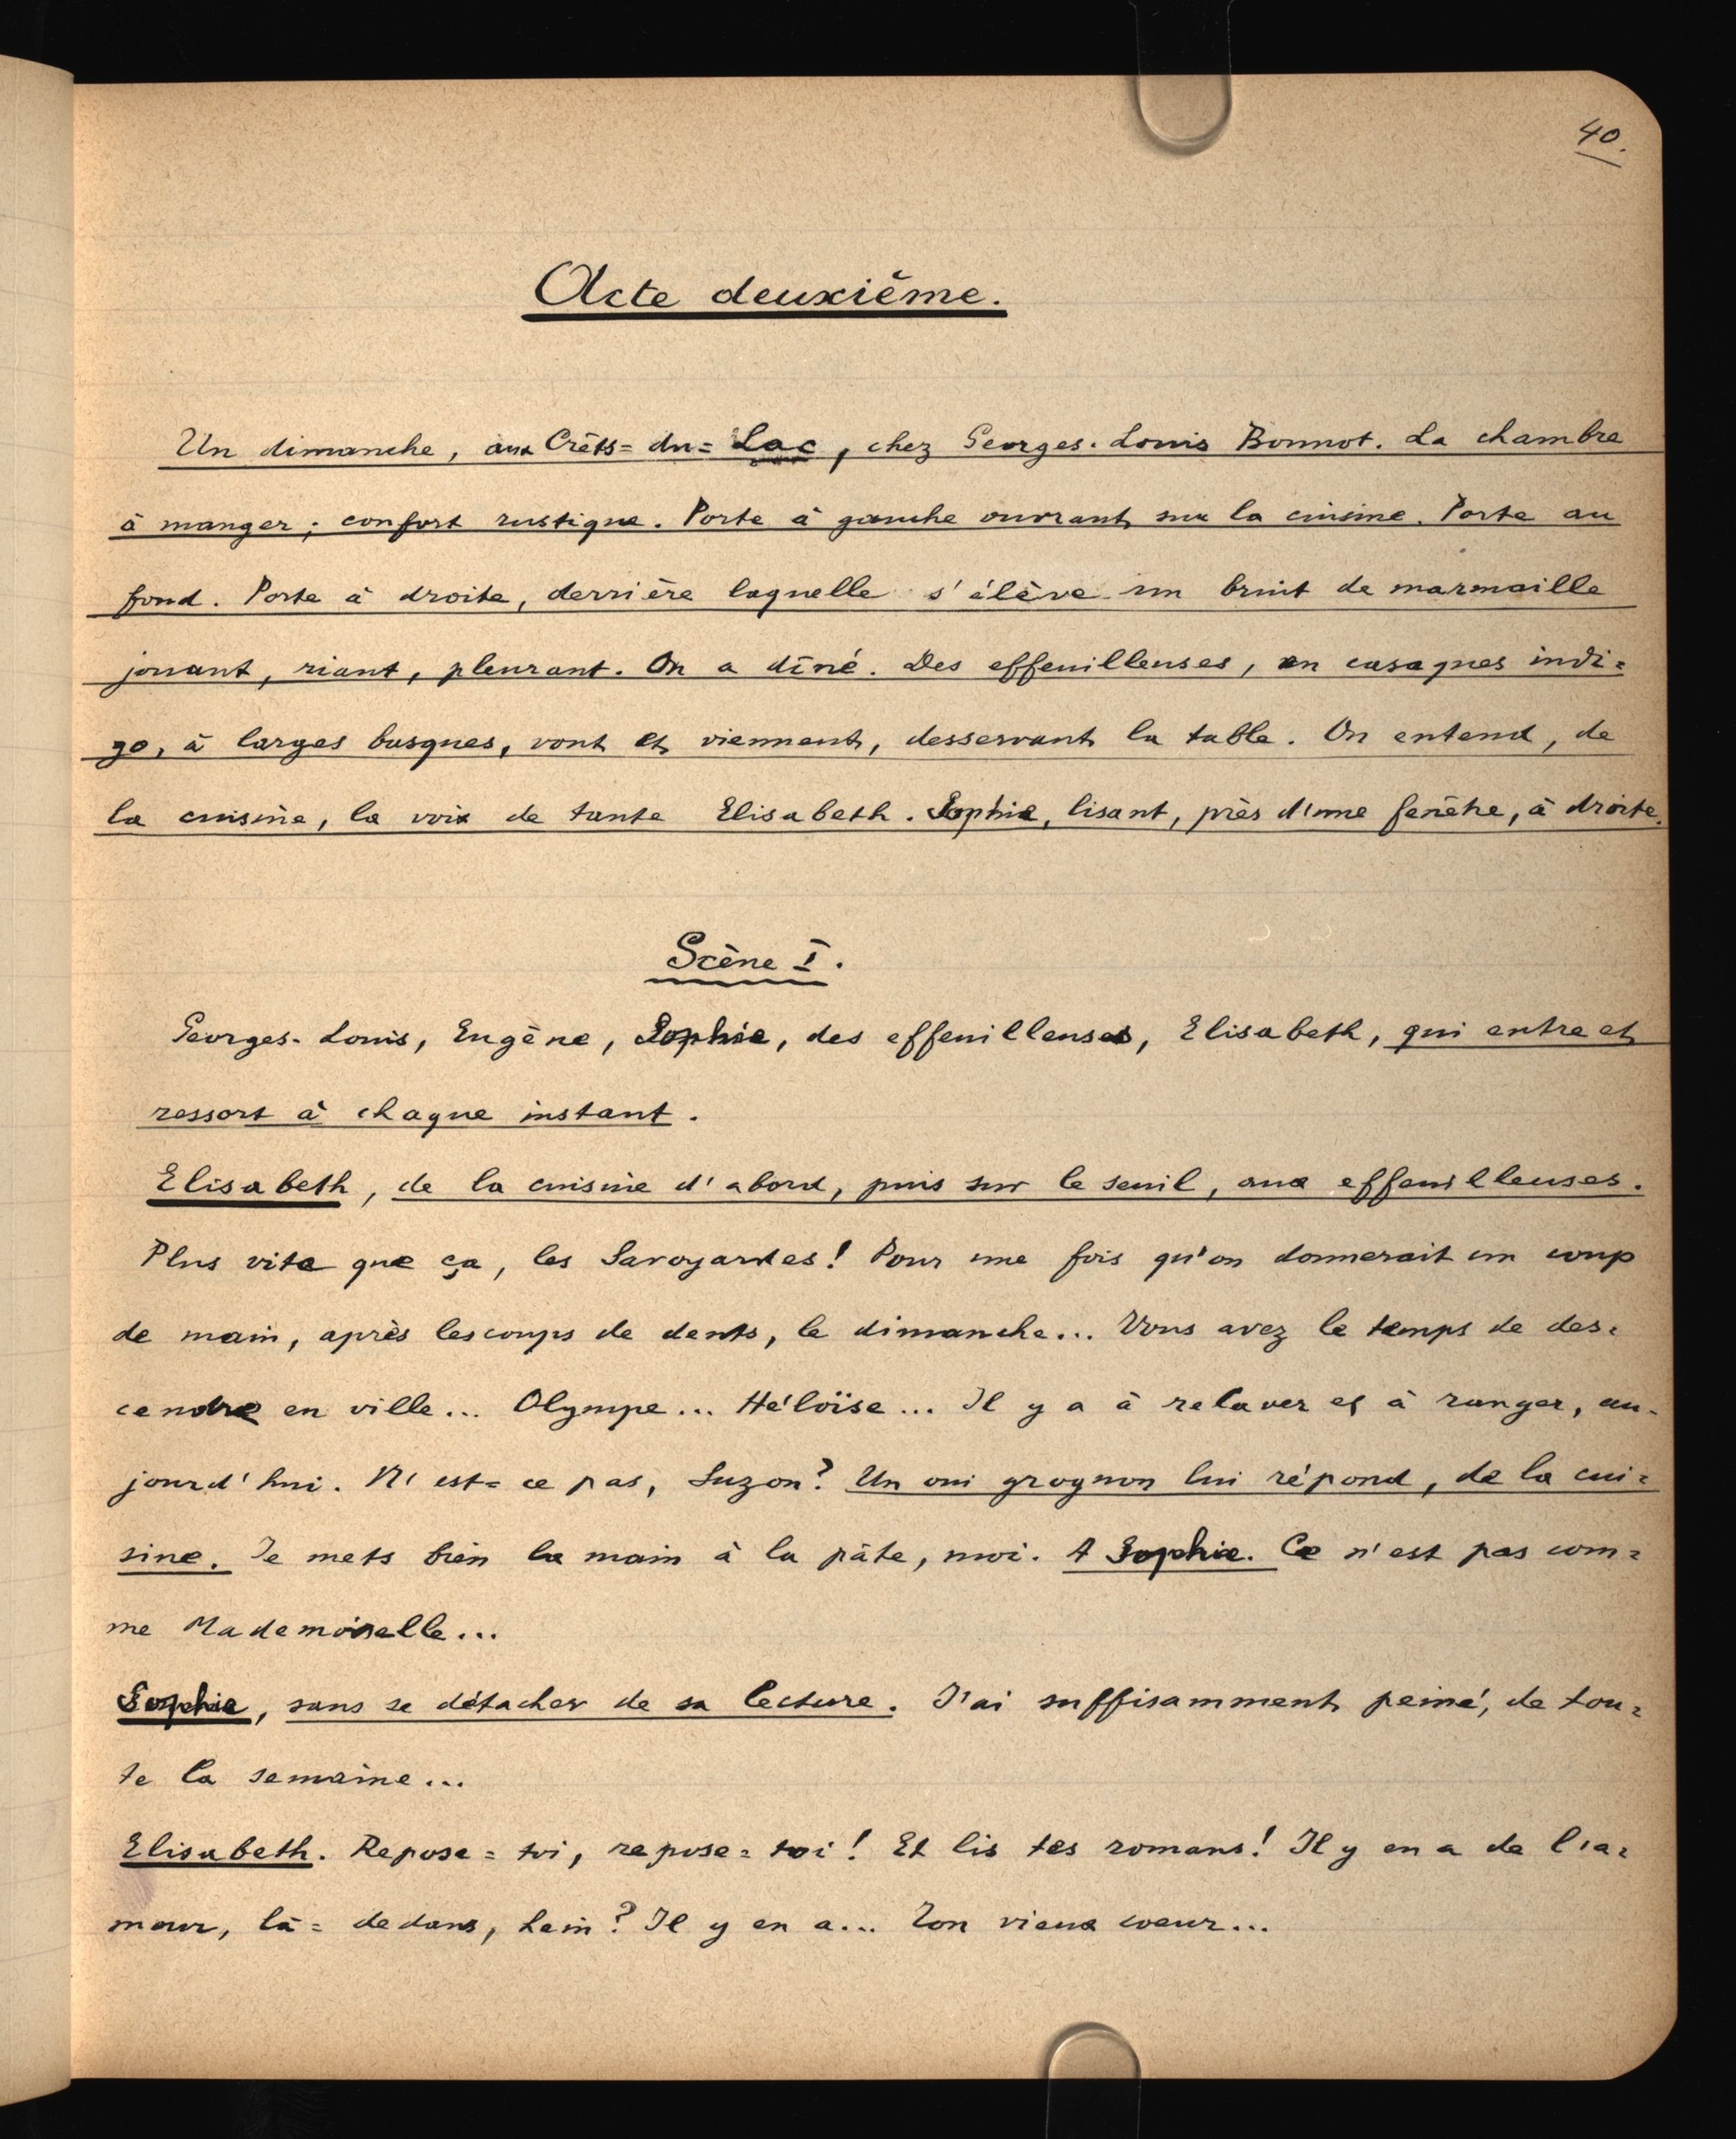 40.
Acte deuxième.
Un dimanche, aux Crêts=du=Lac, chez Georges-Louis Bonnot. La chambre
à manger ; confort rustique. Porte à gauche ouvrant sur la cuisine. Porte au
fond. Porte à droite, derrière laquelle s'élève un bruit de marmaille
jouant, riant, pleurant. On a dîné. Des effeuilleuses, en casaques indi=
go, à larges basques, vont et viennent, desservant la table. On entend, de
la cuisine, la voix de tante Elisabeth. Sophie, lisant, près d'une fenêtre, à droite.
Scène I.
Georges-Louis, Eugène, Sophie, des effeuilleuses, Elisabeth, qui entre et
ressort à chaque instant.
Elisabeth, de la cuisine d'abord, puis sur le seuil, aux effeuilleuses.
Plus vite que ça, les Savoyardes! Pour une fois qu'on donnerait un coup
de main, après les coups de dents, le dimanche... Vous avez le temps de des-
cendre en ville... Olympe... Héloïse... Il y a à relaver et à ranger, au-
jourd'hui. N'est=ce pas, Suzon? Un oui grognon lui répond, de la cui=
sine. Je mets bien la main à la pâte, moi. A Sophie. Ce n'est pas com=
me Mademoiselle...
Sophie, sans se détacher de sa lecture. J'ai suffisamment peiné, de tou=
te la semaine...
Elisabeth. Repose=toi, repose=toi! Et lis tes romans! Il y en a de l'a=
mour, là=dedans, hein? Il y en a... Ton vieux coeur...